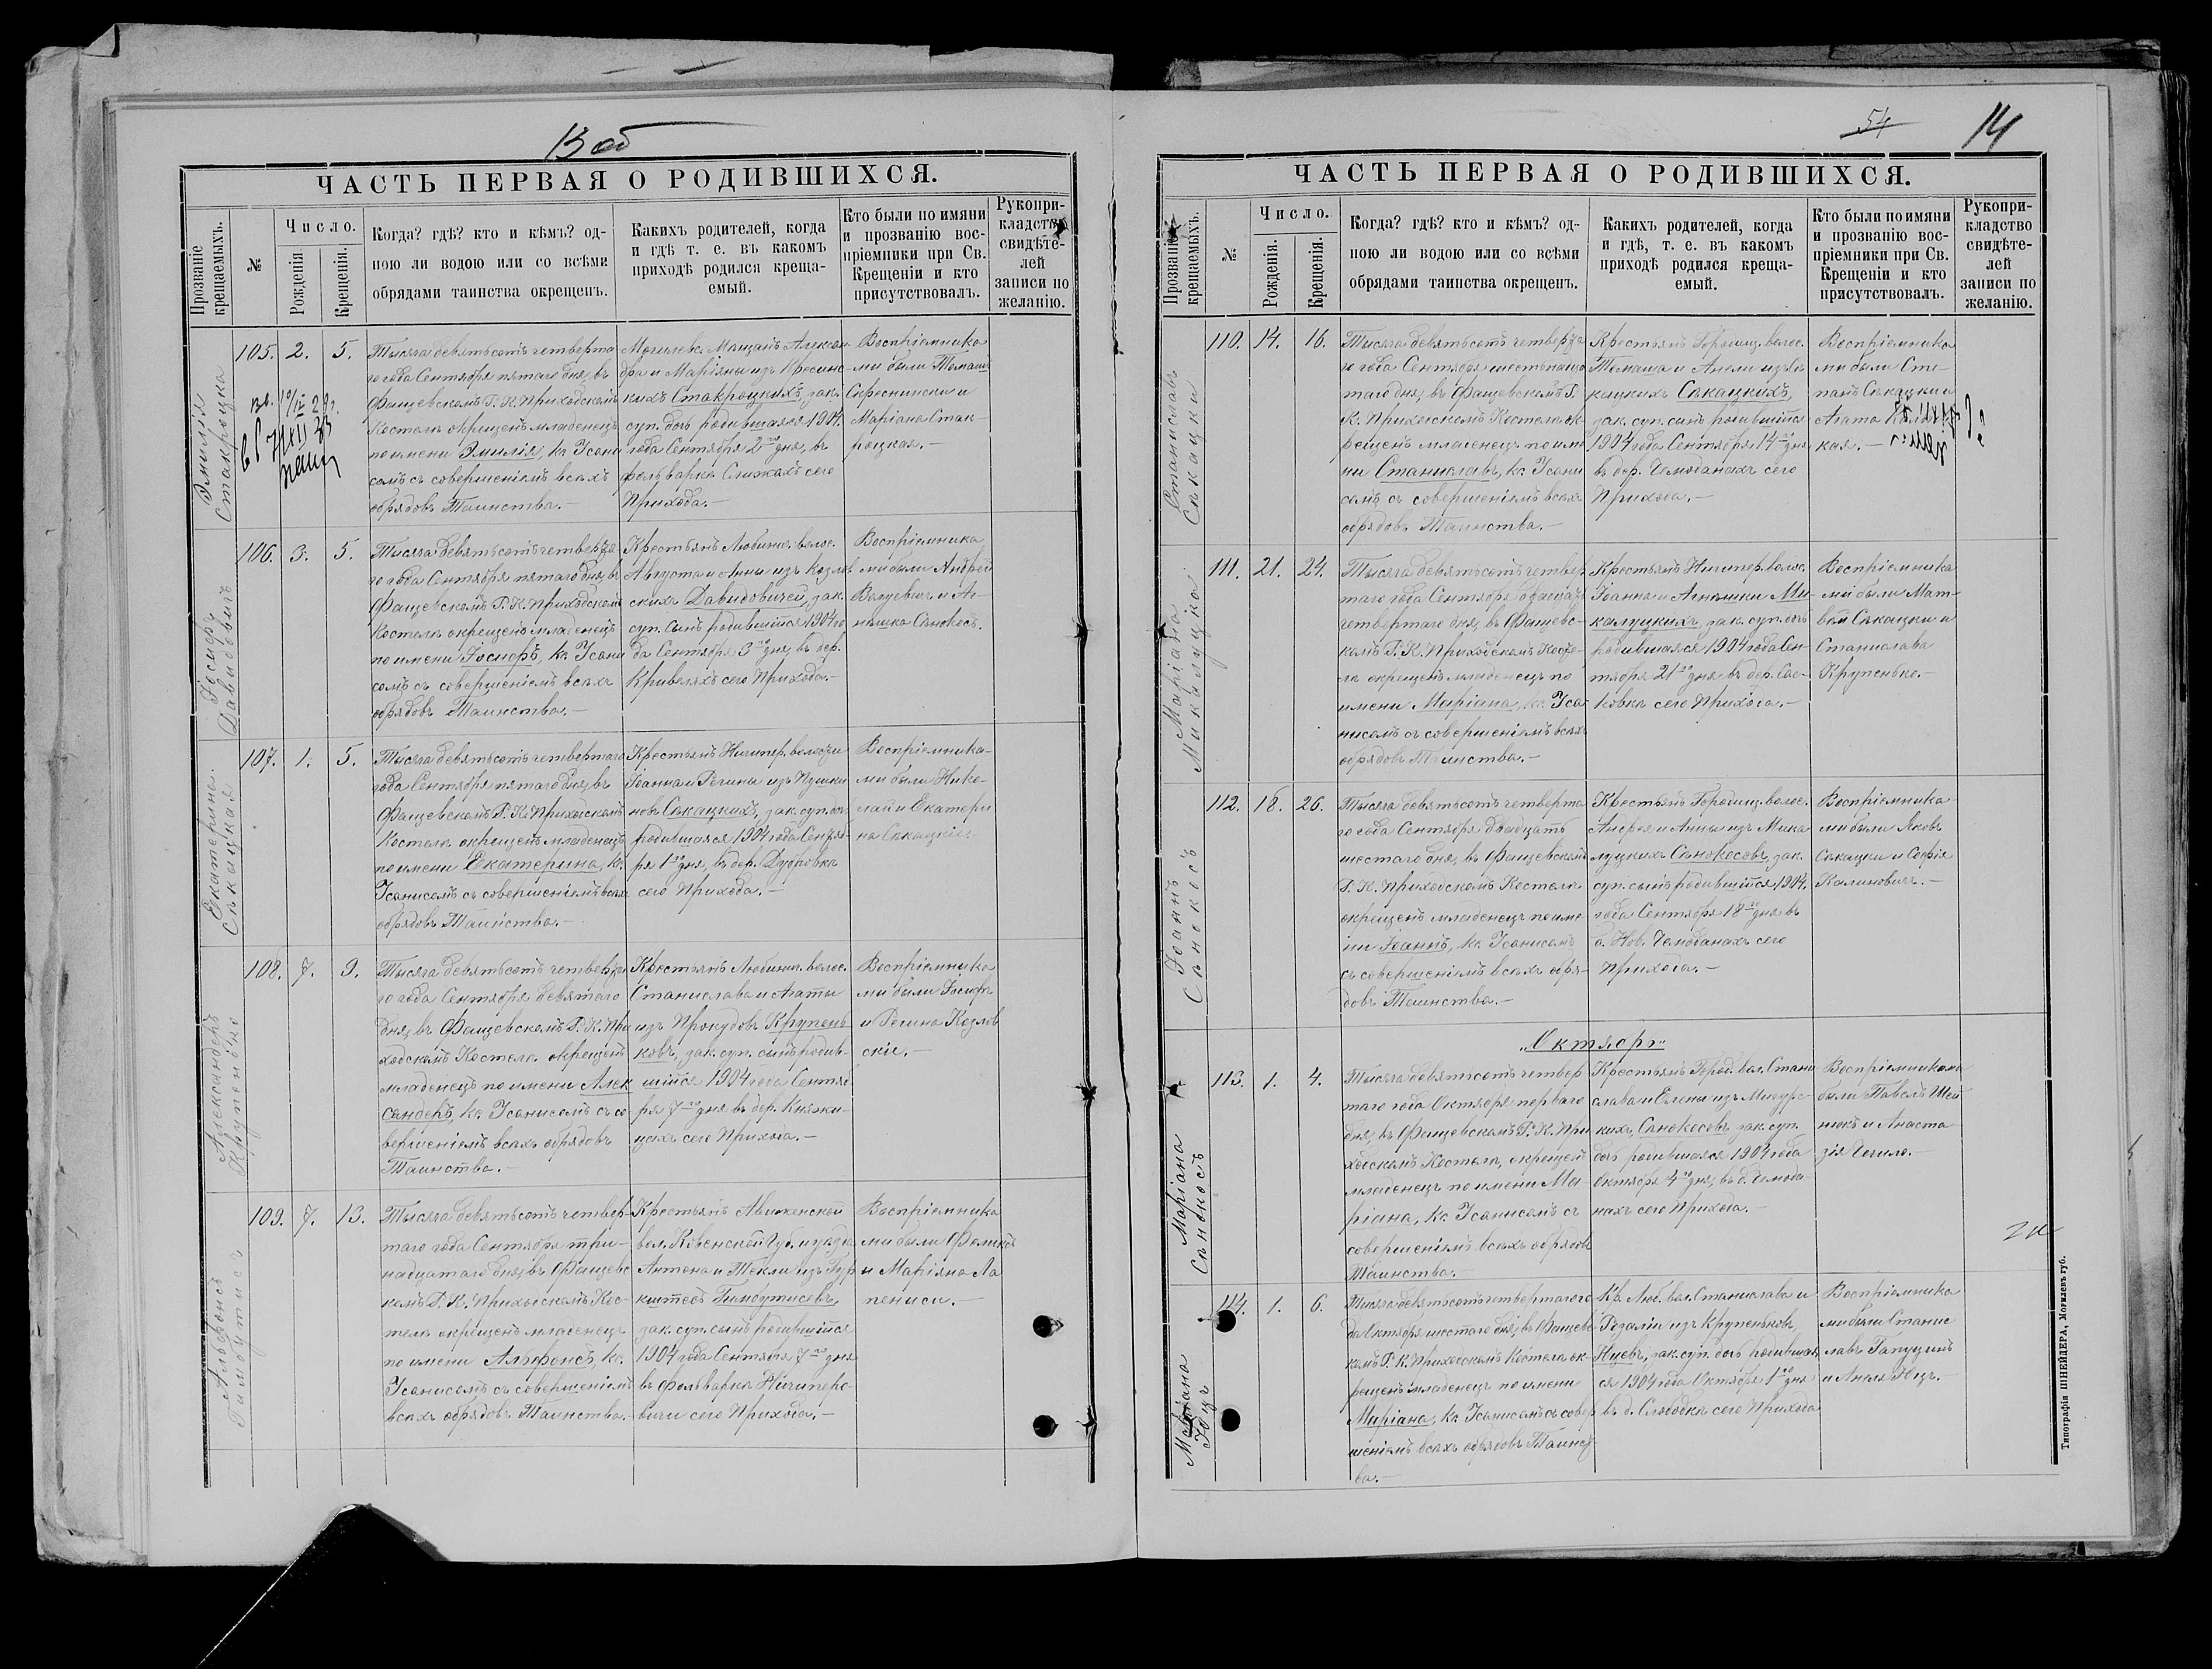 13 об
ЧАСТЬ ПЕРВАЯ О РОДИВШИХСЯ.
Прозваніе крещаемыхъ.
№
Число.
Рожденія.
Крещенія.
Когда? гдѣ? кто и кѣмъ? од-
ною ли водою или со всѣми
обрядами таинства окрещенъ.
Какихъ родителей, когда
и гдѣ т. е. въ какомъ
приходѣ родился креща-
емый.
Кто были по имяни
и прозванію вос-
пріемники при Св.
Крещеніи и кто
присутствовалъ.
Рукопри-
кладство
свидѣте-
лей
записи по
желанію.
Эмилія
Стакроцка
105. 2. 5.
Тысяча девятьсотъ четверта-
го года Сентября пятаго дня, въ
Фащевскомъ Р. К. Приходскомъ
Костелѣ окрещенъ младенецъ
по имени Эмилія, кс. Усани
самъ съ совершеніемъ всѣхъ
обрядовъ Таинства.-
Могилевс. Мѣщанъ Алексан-
дра и Маріяны изъ
кихъ Стакроцкихъ, зак.
суп. дочь родившаяся 1904.
года Сентября 2го дня, въ
фольваркѣ сего
Прихода.-
Воспріемника-
ми были Томашъ
и
Маріана Стак-
роцкая.-
Іосифъ
Давидовичъ
106. 3. 5.
Тысяча девятьсотъ четверта-
го года Сентября пятаго дня, въ
Фащевскомъ Р. К. Приходскомъ
Костелѣ окрещенъ младенецъ
по имени Іосифъ, кс. Усани
самъ съ совершеніемъ всѣхъ
обрядовъ Таинства.-
Крестьянъ Любинич. волос.
Августа и Анны изъ Козлов-
скихъ Давидовичей, зак.
суп. сынъ родившійся 1904 го-
да Сентября 3го дня, въ дер.
Кривеляхъ сего Прихода.-
Воспріемника
ми были Андрей
и Аг-
нѣшка Сѣнокосъ.
Екатерина
Сѣкацкая
107. 1. 5.
Тысяча девятьсотъ четвертаго
года Сентября пятаго дня, въ
Фащевскомъ Р. К. Приходскомъ
Костелѣ окрещенъ младенецъ
по имени Екатерина, кс.
Усанисомъ съ совершеніемъ всѣхъ
обрядовъ Таинства.-
Крестьянъ Ничипер. волости
Іоанна и Регины изъ Пушки-
новъ Сѣкацкихъ, зак. суп. дочь
родившаяся 1904 года Сентяб-
ря 1го дня, въ дер. Дубровкѣ
сего Прихода.-
Воспріемника-
ми были Нико-
лай и Екатери
на Сѣкацкіе.-
Александеръ
Крупенько
108. 7. 9.
Тысяча девятьсотъ четверта-
го года Сентября девятаго
дня, въ Фащевскомъ Р. К. При
ходскомъ Костелѣ окрещенъ
младенецъ по имени Алек
сандеръ, кс. Усанисомъ съ со
вершеніемъ всѣхъ обрядовъ
Таинства.-
Крестьянъ Любинич. волос.
Станислава и Агаты
изъ Прокудовъ Крупень-
ковъ, зак. суп. сынъ родив-
шійся 1904 года Сентяб-
ря 7го дня въ дер. Княжи-
цахъ сего Прихода.-
Воспріемника
ми были Іосифъ
и Регина Козлов
скіе.-
Альфонсъ
Гимбутисъ
109. 7. 13.
Тысяча девятьсотъ четвер-
таго года Сентября три-
надцатаго дня, въ Фащевс
комъ Р. К. Приходскомъ Кос-
телѣ окрещенъ младенецъ
по имени Альфонсъ, кс.
Усанисомъ съ совершеніемъ
всѣхъ обрядовъ Таинства.-
Крестьянъ
вол. Ковенской Губ. и уѣзда
Антона и Текли изъ
Гимбутисовъ,
зак. суп. сынъ родившійся
1904 года Сентября 7го дня
въ фольваркѣ Ничиперо-
вичи сего Прихода.-
Воспріемника
ми были Феликсъ
и Маріяна Ла
пениси.-
54 14
ЧАСТЬ ПЕРВАЯ О РОДИВШИХСЯ.
Прозваніе крещаемыхъ.
№
Число.
Рожденія.
Крещенія.
Когда? гдѣ? кто и кѣмъ? од-
ною ли водою или со всѣми
обрядами таинства окрещенъ.
Какихъ родителей, когда
и гдѣ, т. е. въ какомъ
приходѣ родился креща-
емый.
Кто были по имяни
и прозванію вос-
пріемники при Св.
Крещеніи и кто
присутствовалъ.
Рукопри-
кладство
свидѣте-
лей
записи по
желанію.
Станиславъ
Сѣкацки
110. 14. 16.
Тысяча девятьсотъ четверта-
го года Сентября шестьнадца
таго дня, въ Фащевскомъ Р.
К. Приходскомъ Костелѣ ок-
рещенъ младенецъ по име
ни Станиславъ, кс. Усани
сомъ съ совершеніемъ всѣхъ
обрядовъ Таинства.-
Крестьянъ Городищ. волос.
Томаша и Анели изъ Сѣ-
кацкихъ Сѣкацкихъ,
зак. суп. сынъ родившійся
1904 года Сентября 14го дня
въ дер. Чемоданахъ сего
Прихода.-
Воспріемника
ми были Сте-
панъ Сѣкацки и
Агата
кая.-
Маріана
Микалуцка
111. 21. 24.
Тысяча девятьсотъ четвер
таго года Сентября двадцать
четвертаго дня, въ Фащевс-
комъ Р. К. Приходскомъ Косте-
лѣ окрещенъ младенецъ по
имени Маріана, кс. Уса
нисомъ съ совершеніемъ всѣхъ
обрядовъ Таинства.-
Крестьянъ Ничипер. волос.
Іоанна и Агнѣшки Ми-
калуцкихъ, зак. суп. дочь
родившаяся 1904 года Сен-
тября 21го дня въ дер. Сос-
новкѣ сего Прихода.-
Воспріемника
ми были Мат-
вѣй Сѣкацки и
Станислава
Крупенько.-
Іоаннъ
Сѣнокосъ
112. 18. 26.
Тысяча девятьсотъ четверта
го года Сентября двадцать
шестаго дня, въ Фащевскомъ
Р. К. Приходскомъ Костелѣ
окрещенъ младенецъ по име-
ни Іоаннъ, кс. Усанисомъ
съ совершеніемъ всѣхъ обря-
довъ Таинства.-
Крестьянъ Городищ. волос.
Андрея и Анны изъ Мика
луцкихъ Сѣнокосовъ, зак.
суп. сынъ родившійся 1904.
года Сентября 18го дня въ
д. Нов. Чемоданахъ сего
Прихода.-
Воспріемника
ми были Яковъ
Сѣкацки и Софія
Калиновичъ.-
„Октябрь"
Маріана
Сѣнокосъ
113. 1. 4.
Тысяча девятьсотъ четвер
таго года Октября перваго
дня, въ Фащевскомъ Р. К. При
ходскомъ Костелѣ, окрещенъ
младенецъ по имени Ма-
ріана, кс. Усанисомъ съ
совершеніемъ всѣхъ обрядовъ
Таинства.-
Крестьянъ Город. вол. Стани
слава и Елены изъ
кихъ, Сѣнокосовъ зак. суп.
дочь родившаяся 1904 года
Октября 4го дня, въ д. Чемода-
нахъ сего Прихода.-
Воспріемниками
были Павелъ Шей
нюкъ и Анаста
зія Чечило.-
Маріана
Юцъ
114. 1. 6.
Тысяча девятьсотъ четвертаго го
да Октября шестаго дня, въ Фащевс
комъ Р. К. Приходскомъ Костелѣ ок-
рещенъ младенецъ по имени
Маріана, кс. Усанисомъ съ совер
шеніемъ всѣхъ обрядовъ Таинст
ва.-
Кр. Люб. вол. Станислава и
Розаліи изъ Крупеньковъ,
Юцевъ, зак. суп. дочь родившая
ся 1904 года Октября 1го дня
въ д. Слободкѣ сего Прихода
Воспріемника
ми были Станис
лавъ
и Анеля Юцъ.-
Типографія ШНЕЙДЕРА, Могилевъ губ.